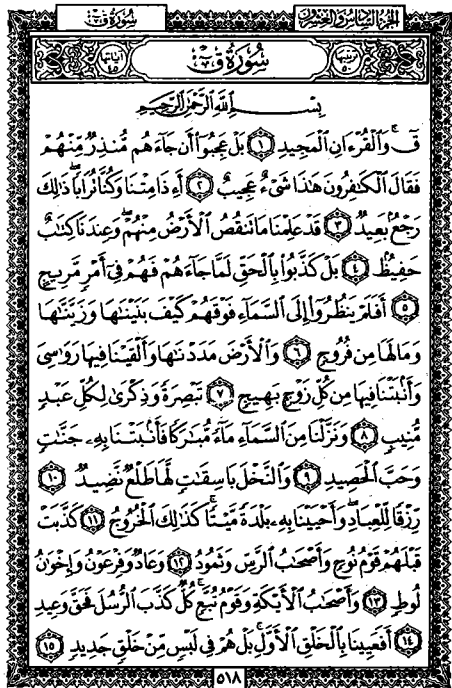 سُورَةُ قٓ
الجزء السادس والعشرون
آياتها ٤٥
سُورَةُ قٓ
ترتيبها ٥٠
بِسْمِ اللَّهِ الرَّحْمَٰنِ الرَّحِيمِ
قٓ ۚ وَالْقُرْءَانِ الْمَجِيدِ ١ بَلْ عَجِبُوٓا۟ أَن جَآءَهُم مُّنذِرٌ مِّنْهُمْ
فَقَالَ الْكَٰفِرُونَ هَٰذَا شَىْءٌ عَجِيبٌ ٢ أَءِذَا مِتْنَا وَكُنَّا تُرَابًا ۖ ذَٰلِكَ
رَجْعٌۢ بَعِيدٌ ٣ قَدْ عَلِمْنَا مَا تَنقُصُ الْأَرْضُ مِنْهُمْ ۖ وَعِندَنَا كِتَٰبٌ
حَفِيظٌۢ ٤ بَلْ كَذَّبُوا۟ بِالْحَقِّ لَمَّا جَآءَهُمْ فَهُمْ فِىٓ أَمْرٍ مَّرِيجٍ
٥ أَفَلَمْ يَنظُرُوٓا۟ إِلَى السَّمَآءِ فَوْقَهُمْ كَيْفَ بَنَيْنَٰهَا وَزَيَّنَّٰهَا
وَمَا لَهَا مِن فُرُوجٍ ٦ وَالْأَرْضَ مَدَدْنَٰهَا وَأَلْقَيْنَا فِيهَا رَوَٰسِىَ
وَأَنۢبَتْنَا فِيهَا مِن كُلِّ زَوْجٍۭ بَهِيجٍ ٧ تَبْصِرَةً وَذِكْرَىٰ لِكُلِّ عَبْدٍ
مُّنِيبٍ ٨ وَنَزَّلْنَا مِنَ السَّمَآءِ مَآءً مُّبَٰرَكًا فَأَنۢبَتْنَا بِهِۦ جَنَّٰتٍ
وَحَبَّ الْحَصِيدِ ٩ وَالنَّخْلَ بَاسِقَٰتٍ لَّهَا طَلْعٌ نَّضِيدٌ ١٠
رِّزْقًا لِّلْعِبَادِ ۖ وَأَحْيَيْنَا بِهِۦ بَلْدَةً مَّيْتًا ۚ كَذَٰلِكَ الْخُرُوجُ ١١ كَذَّبَتْ
قَبْلَهُمْ قَوْمُ نُوحٍ وَأَصْحَٰبُ الرَّسِّ وَثَمُودُ ١٢ وَعَادٌ وَفِرْعَوْنُ وَإِخْوَٰنُ
لُوطٍ ١٣ وَأَصْحَٰبُ الْأَيْكَةِ وَقَوْمُ تُبَّعٍ ۚ كُلٌّ كَذَّبَ الرُّسُلَ فَحَقَّ وَعِيدِ
١٤ أَفَعَيِينَا بِالْخَلْقِ الْأَوَّلِ ۚ بَلْ هُمْ فِى لَبْسٍ مِّنْ خَلْقٍ جَدِيدٍ ١٥
٥١٨